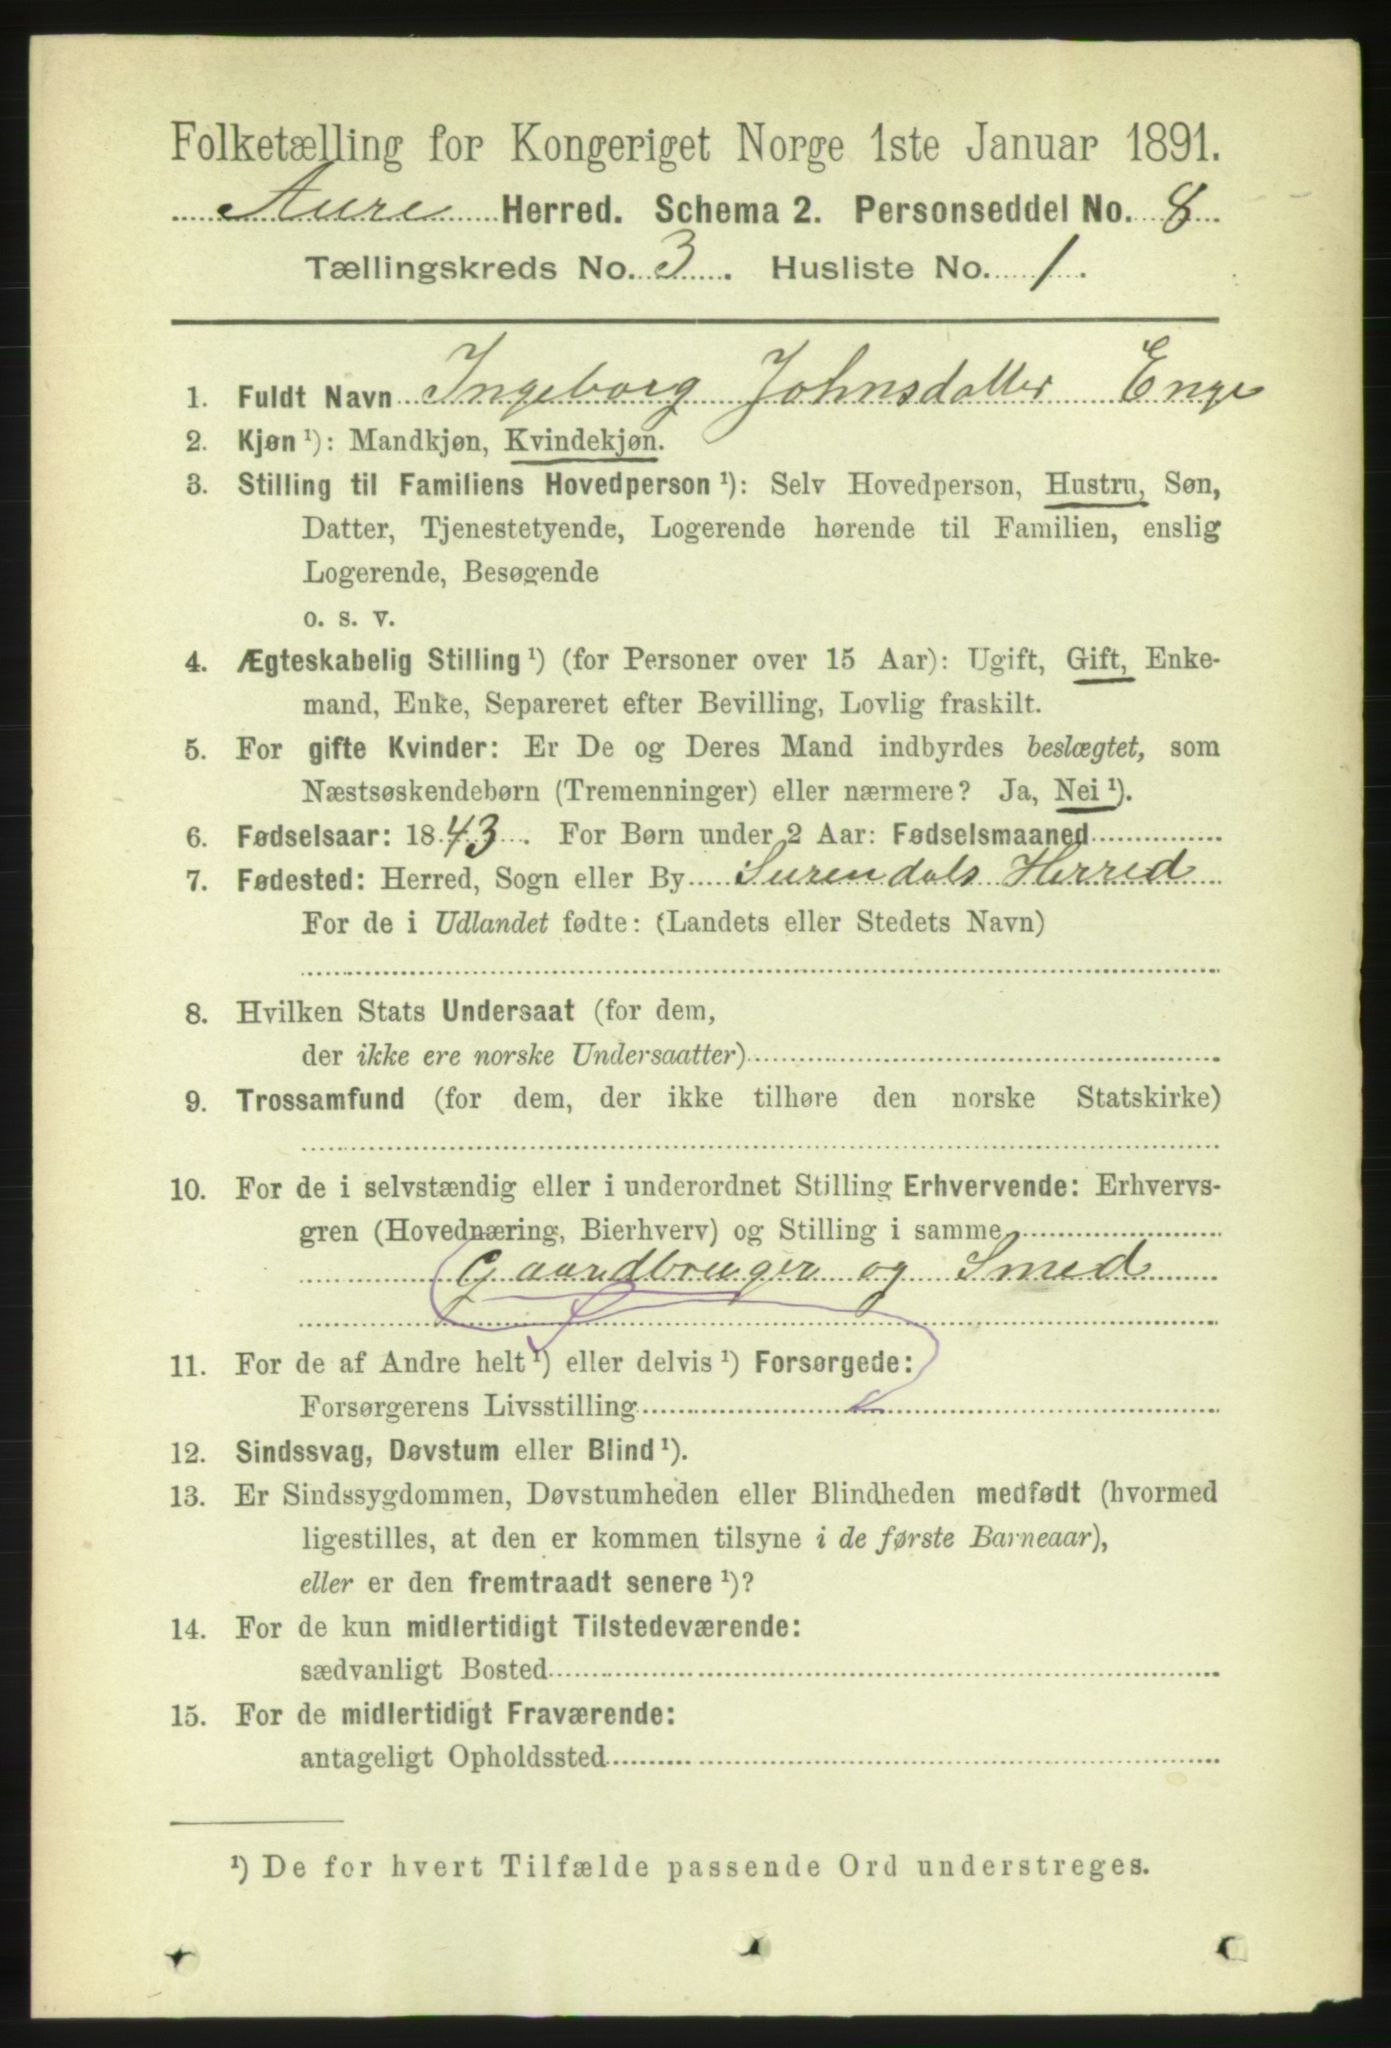 Folketælling for Kongeriget Norge 1ste Januar 1891.
Aure Herred. Schema 2. Personseddel No. 8
Tællingskreds No. 3. Husliste No. 1.
1. Fuldt Navn Ingeborg Johnsdatter Enge
2. Kjøn ¹): Mandkjøn, Kvindekjøn.
3. Stilling til Familiens Hovedperson ¹): Selv Hovedperson, Hustru, Søn,
Datter, Tjenestetyende, Logerende hørende til Familien, enslig
Logerende, Besøgende
o. s. v.
4. Ægteskabelig Stilling ¹) (for Personer over 15 Aar): Ugift, Gift, Enke-
mand, Enke, Separeret efter Bevilling, Lovlig fraskilt.
5. For gifte Kvinder: Er De og Deres Mand indbyrdes beslægtet, som
Næstsøskendebørn (Tremenninger) eller nærmere? Ja, Nei ¹).
6. Fødselsaar: 1843. For Børn under 2 Aar: Fødselsmaaned
7. Fødested: Herred, Sogn eller By Surendals Herred
For de i Udlandet fødte: (Landets eller Stedets Navn)
8. Hvilken Stats Undersaat (for dem,
der ikke ere norske Undersaatter)
9. Trossamfund (for dem, der ikke tilhøre den norske Statskirke)
10. For de i selvstændig eller i underordnet Stilling Erhvervende: Erhvervs-
gren (Hovednæring, Bierhverv) og Stilling i samme
Gaardbruger og Smed
11. For de af Andre helt ¹) eller delvis ¹) Forsørgede:
Forsørgerens Livsstilling
12. Sindssvag, Døvstum eller Blind ¹).
13. Er Sindssygdommen, Døvstumheden eller Blindheden medfødt (hvormed
ligestilles, at den er kommen tilsyne i de første Barneaar),
eller er den fremtraadt senere ¹)?
14. For de kun midlertidigt Tilstedeværende:
sædvanligt Bosted
15. For de midlertidigt Fraværende:
antageligt Opholdssted
¹) De for hvert Tilfælde passende Ord understreges.